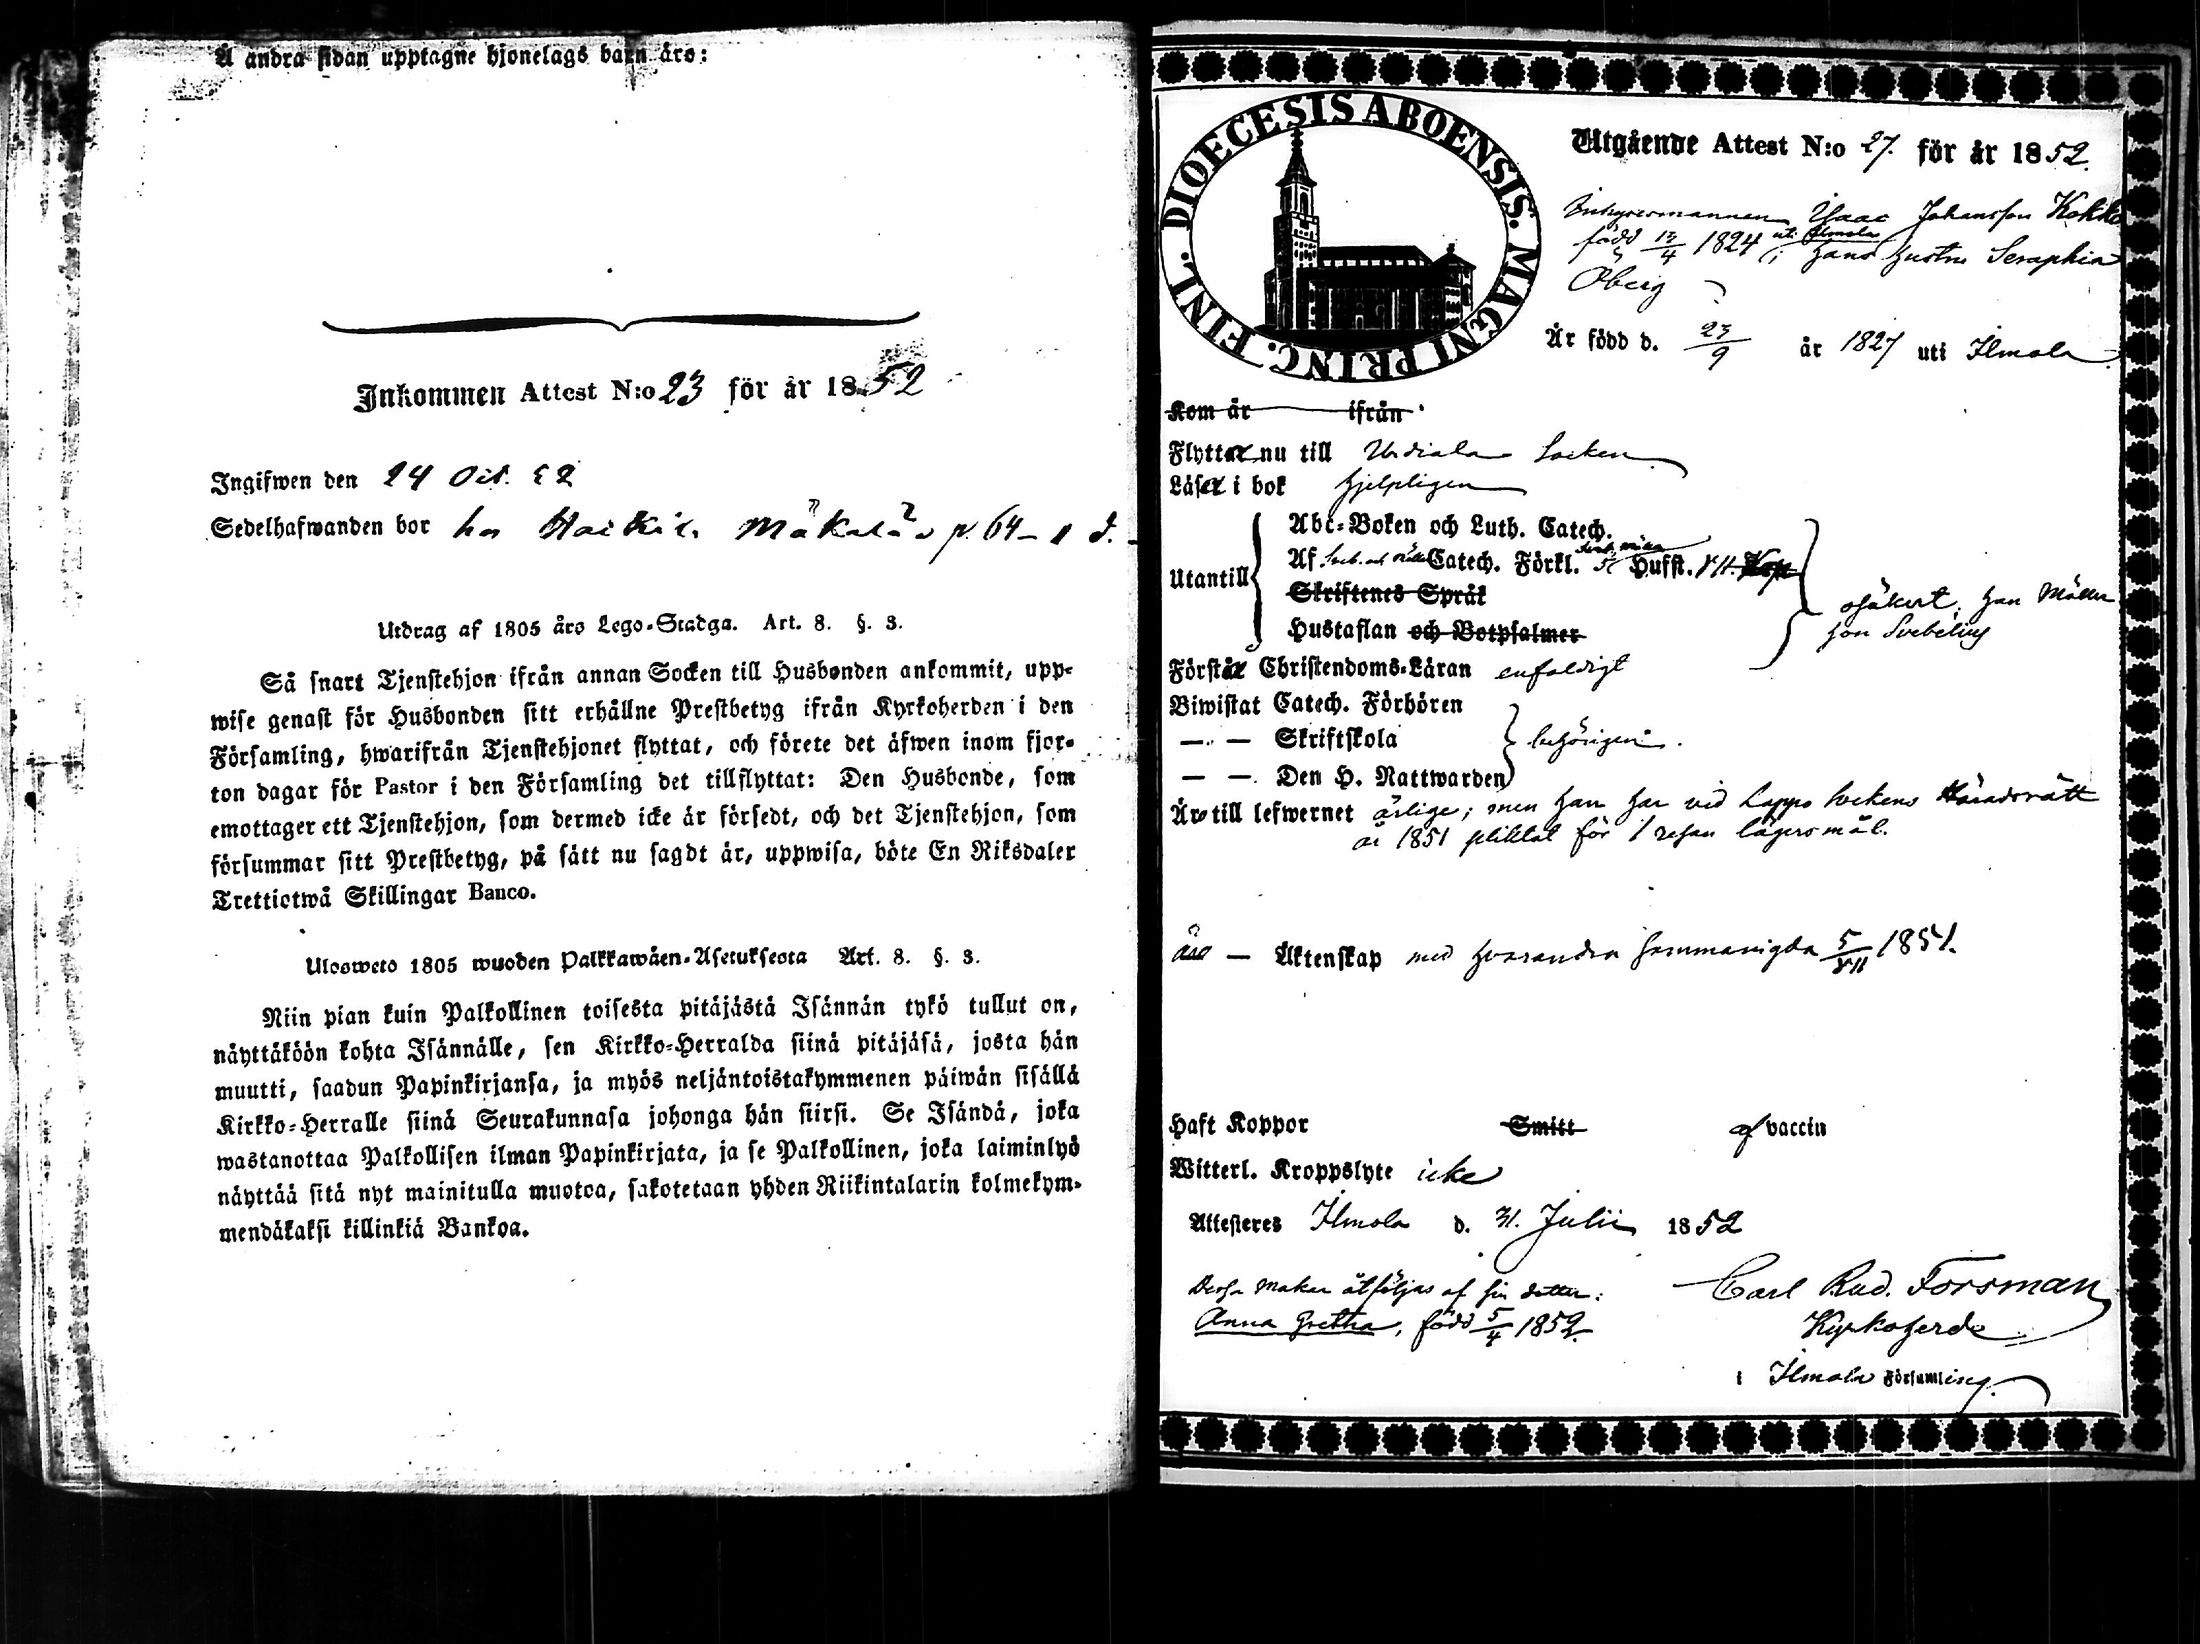 Å andra sidan upptagne hjonelags barn äro:
Inkommen Attest N:o 23 för år 1852
Ingifwen den 24 Oct. 52
Sedelhafwanden bor hos Heikki Mäkelä p. 64
Utdrag af 1805 års Lego-Stadga. Art. 8. §. 3.
Så snart Tjenstehjon ifrån annan Socken till Husbonden ankommit, upp-
wise genast för Husbonden sitt erhållne Prestbetyg ifrån Kyrkoherden i den
Församling, hwarifrån Tjenstehjonet flyttat, och förete det äfwen inom fjor-
ton dagar för Pastor i den Församling det tillflyttat: Den Husbonde, som
emottager ett Tjenstehjon, som dermed icke är försedt, och det Tjenstehjon, som
försummar sitt Prestbetyg, på sätt nu sagdt är, uppwisa, böte En Riksdaler
Trettiotwå Skillingar Banco.
Ulosweto 1805 wuoden Palkkawäen-Asetuksesta Art. 8. §. 3.
Niin pian kuin Palkollinen toisesta pitäjästä Isännän tykö tullut on,
näyttäköön kohta Isännälle, sen Kirkko-Herralda siinä pitäjäsä, josta hän
muutti, saadun Papinkirjansa, ja myös neljäntoistakymmenen päiwän sisällä
Kirkko-Herralle siinä Seurakunnasa johonga hän siirsi. Se Isändä, joka
wastanottaa Palkollisen ilman Papinkirjata, ja se Palkollinen, joka laiminlyö
näyttää sitä nyt mainitulla muotoa, sakotetaan yhden Riikintalarin kolmekym-
mendäkaksi killinkiä Bankoa.
DIOECESIS ABOENSIS. MAGNI PRINC. FINL.
Utgående Attest N:o 27. för år 1852.
Inhysesmannen Isaac Johansson Kokko
född 13/4 1824 uti Ilmola; hans hustru Seraphia
Öberg
Är född d. 23/9 år 1827 uti Ilmola
Kom år ifrån
Flytta nu till Urdiala Socken
Läsa i bok hjelpligen
Utantill
Abc-Boken och Luth. Catech.
Af Sveb. och Catech. Förkl. Hufst.
Skriftenes Språk
Hustaflan och Botpsalmer
osäkert. han Möller
hon Svebelius
Förstå Christendoms-Läran enfaldigt
Biwistat Catech. Förhören
— — Skriftskola behörigen.
— — Den H. Nattwarden
Äro till lefwernet ärlige; men han har vid Lappo Sockens Häradsrätt
år 1851 pliktat för 1 resan lägersmål.
äro — Äktenskap med hvarandra sammanvigda 5/VII 1851.
Haft Koppor Smitt af vaccin
Witterl. Kroppslyte icke
Attesteres Ilmola d. 31. Julii 1852
Dessa makar åtföljas af sin dotter:
Anna Gretha, född 5/4 1852.
Carl Rud. Forsman
Kyrkoherde
i Ilmola Församling.